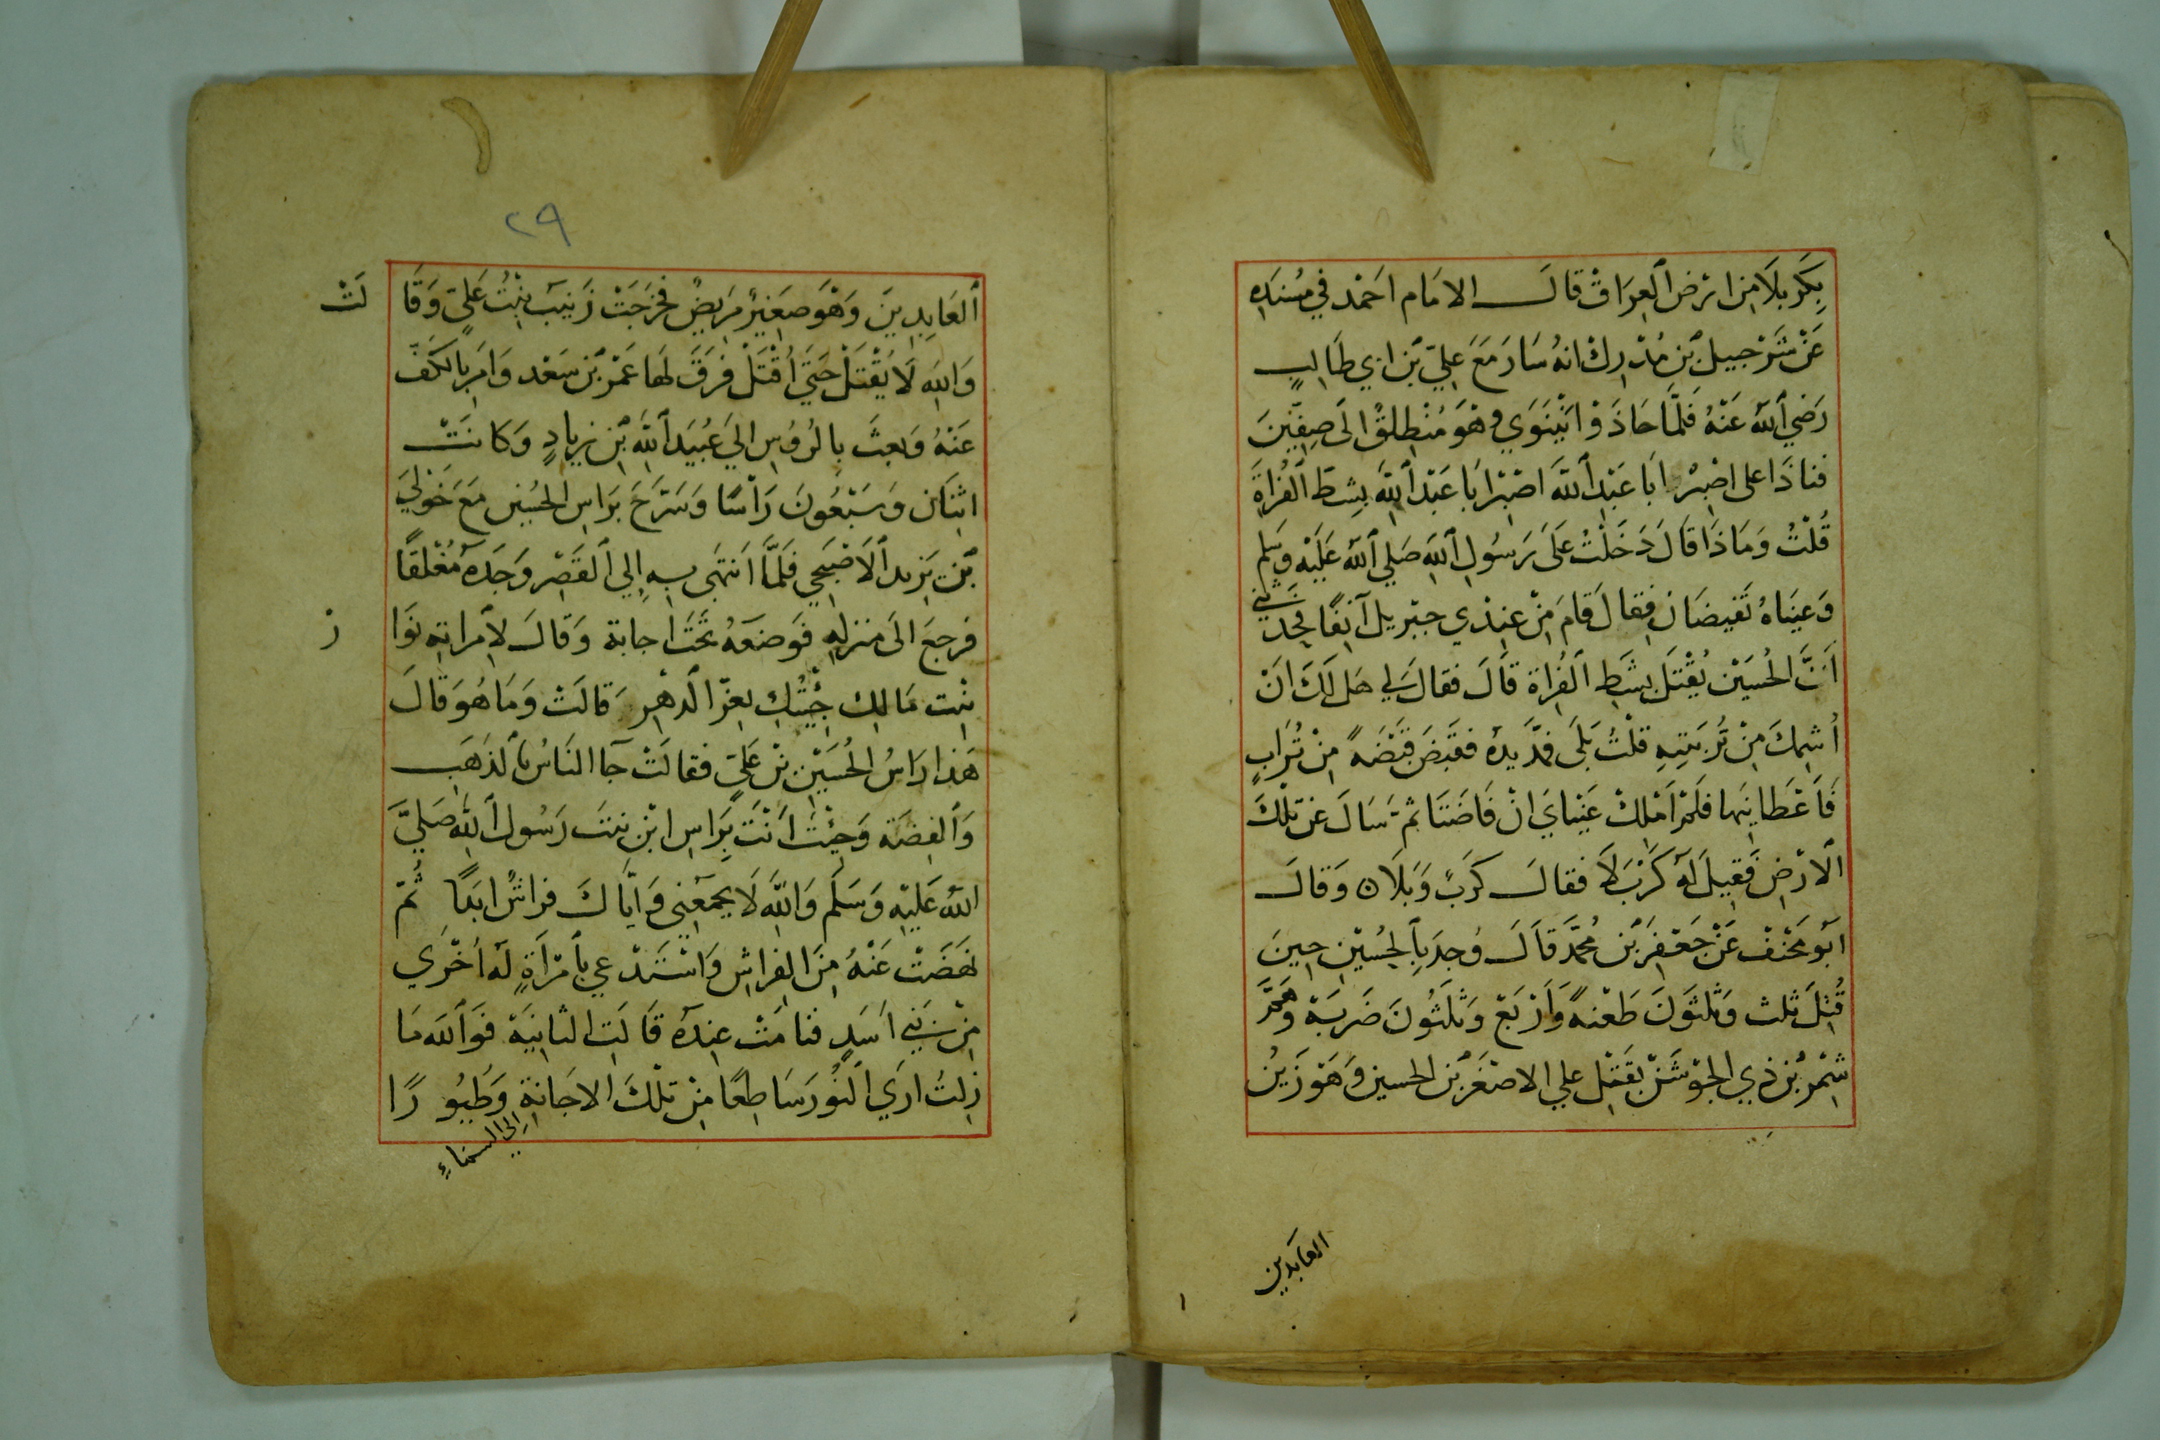 بِكَرْبلَا مِن ارْض ٱلعِرَاق قالَ الامَام احَمْد في مسْنَدِهِ
عَنْ شَرْجبيل بْن مُدْرِك انهُ سَارَ مَعَ عِليّ بْن ابي طَالِبٍ
رَضيَ ٱللَّه عَنْهُ فَلَمَّا حَاذَوْا نيْنَوَي وهْوَ مُنْطِلقْ الَى صِفِّيْنَ
فناذَا على اصْبِرْ ابَا عَبْدِ ٱللَّهَ اصْبِرْ ابَا عَبْد ٱللَّه بِشِطّ الفُرَاةَ
قُلْتُ وَمَا ذَا قَالَ دَخَلْتُ عَلىَ رَسُولِ ٱللَّهِ صَلي ٱللَّه عَلَيْهِ وسَلم
وَعيَنَاهُ تَفيِضَانِ فِقالَ قامَ مِنْ عِنِدْي جبْرِيل آنِفًا يحَدِّثني
اَنَّ الحُسَيْن يُقْتَل بِشَطِ الفُرِاة قَالَ فقالَ لي هَل لَكَ انْ
اُشِمكَ مِنْ تُرْبَتِهِ قلْتُ بَلَى فمَّد يدهُ فقبَضَ قَبْضَةً مِنْ تُرَابٍ
فَاَعْطَانِيَها فلَمْ اَمْلِكْ عَيْنايَ انْ فَاضَتَا ثم سَالَ عَن تلْكَ
الارْضِ فَقِيلَ لَهُ كَرْبَلَا فقالَ كَرَبٌ وَبَلَاه وَقالَ
ابَو مَخْنف عَنْ جَعْفِر بْن مُحمَّد قاَلَ وُجدَ بِاَلحُسَيْنِ حِينَ
قُتِلَ ثلث وَثلثوُنَ طَعْنهً وَاَرْبَع وَثلَثُونَ ضَربَة وَهَمَّ
شِمْر بْن ذِي الجوْشَنْ بقَتْلِ علي الاصْغَر بْن الحسين وَهَوْ زَينُ
العَابَدين
٢٩
ٱلعَابِدِينَ وَهْوَ صَغِيرٌ مِرَيضٌ فخَرَجَتْ زَينَب بنْتُ عَليّ وَقَالَتْ
وَاللهِ لَا يُقْتَلْ حَتَيَّ اُقْتَلْ فرَقَّ لهَا عَمْر بْن سَعْد وَامَر بِالكَفِّ
عَنْهُ وَبعِثَ بِالرُوُسِ اليَ عُبُيَد ٱللَّه بْن زِيادٍ وَكانَتْ
اثنَان وَسَبْعُونَ رَاْسًا وَسَرَّحَ برَاسِ الحُسُين مَعَ خَوْليَ
بْن يَزيد ٱلاَصْبَحِي فَلمَّا اَنتهَى بِهِ اِلي ٱلقَصْر وَجَدَهُ مُغْلقًا
فرجعَ الىَ منزلهِ فوَضعَهُ تَحْتَ اجابة وَقالَ لاِمراتهِ نوَا ز
بنت مَالِكِ جِئْتُكِ بعِزّ الَدهْرِ قالَتْ وَمَا هُوَ قالَ
هَذا رَاسُ الحُسَيْن بْن عَليّ فقالَتْ جَآ النَاسُ باٱلذهَب
وَٱلفِضَة وَجِئتَ اَنْتَ بِرَاسِ ابْن بنتَ رَسُول ٱللَّه صَليَّ
اللَّهُ عَليْهِ وَسَلَم وَاللَّهَ لَا يجَمعَنِي وَاِيَّاكَ فراشٌ ابَدًا ثُمّ
نهَضَتْ عَنْهُ مِنَ الفراشِ وَاسْتَدْعي بِاَمْرَأةٍ لَه اُخْرَي
مِنْ بَني اسَدٍ فنامَتْ عِندَهُ قَالَتِ الثانِيَة فَوَٱللَّه مَا
زِلتُ ارَي الَنُورَ سَاطِعًا مِنْ تلْكَ الاجَانةِ اِلي السماءِ وَطيُورًا